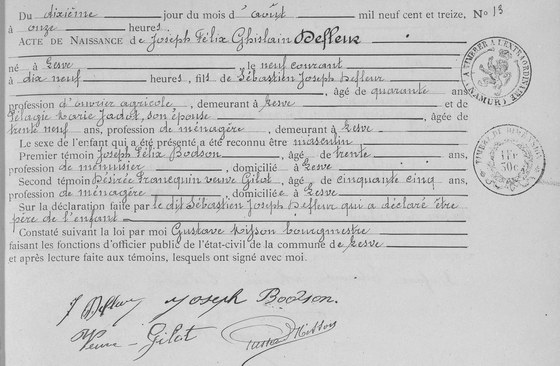 Du dixième jour du mois d'août mil neuf cent et treize, No 13
à onze heures.
ACTE DE NAISSANCE de Joseph Félix Ghislain Defleur
né à Lesve, le neuf courant
à dix neuf heures, fils de Sébastien Joseph Defleur
, âgé de quarante ans,
profession d'ouvrier agricole, demeurant à Lesve et de
Pélagie Marie Jadot, son épouse, âgée de
trente neuf ans, profession de ménagère, demeurant à Lesve.
Le sexe de l'enfant qui a été présenté a été reconnu être masculin
Premier témoin Joseph Félix Bodson, âgé de trente ans,
profession de menuisier, domicilié à Lesve
Second témoin Désirée Franequin veuve Gilot, âgé de cinquante cinq ans,
profession de ménagère, domicilié à Lesve
Sur la déclaration faite par le dit Sébastien Joseph Defleur qui a déclaré être
père de l'enfant
Constaté suivant la loi par moi Gustave Misson bourgmestre
faisant les fonctions d'officier public de l'état-civil de la commune de Lesve
et après lecture faite aux témoins, lesquels ont signé avec moi.
J Defleur Joseph Bodson.
Veuve Gilot
A TIMBRER A L'EXTRAORDINAIRE
(NAMUR)